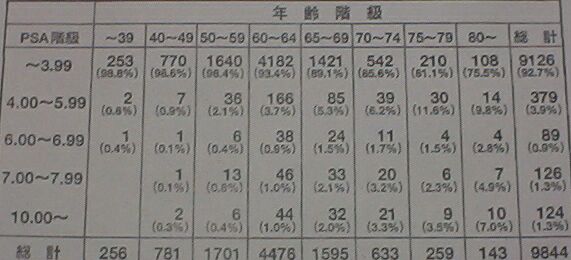 年齢階級
PSA階級 ～39 40～49 50～59 60～64 65～69 70～74 75～79 80～ 総計
～3.99 253 770 1640 4182 1421 542 210 108 9126
(98.8%) (98.6%) (96.4%) (93.4%) (89.1%) (85.6%) (81.1%) (75.5%) (92.7%)
4.00～5.99 2 7 36 166 85 39 30 14 379
(0.8%) (0.9%) (2.1%) (3.7%) (5.3%) (6.2%) (11.6%) (9.8%) (3.9%)
6.00～6.99 1 1 6 38 24 11 4 4 89
(0.4%) (0.1%) (0.4%) (0.9%) (1.5%) (1.7%) (1.5%) (2.8%) (0.9%)
7.00～7.99 1 13 46 33 20 6 7 126
(0.1%) (0.8%) (1.0%) (2.1%) (3.2%) (2.3%) (4.9%) (1.3%)
10.00～ 2 6 44 32 21 9 10 124
(0.3%) (0.4%) (1.0%) (2.0%) (3.3%) (3.5%) (7.0%) (1.3%)
総計 256 781 1701 4476 1595 633 259 143 9844